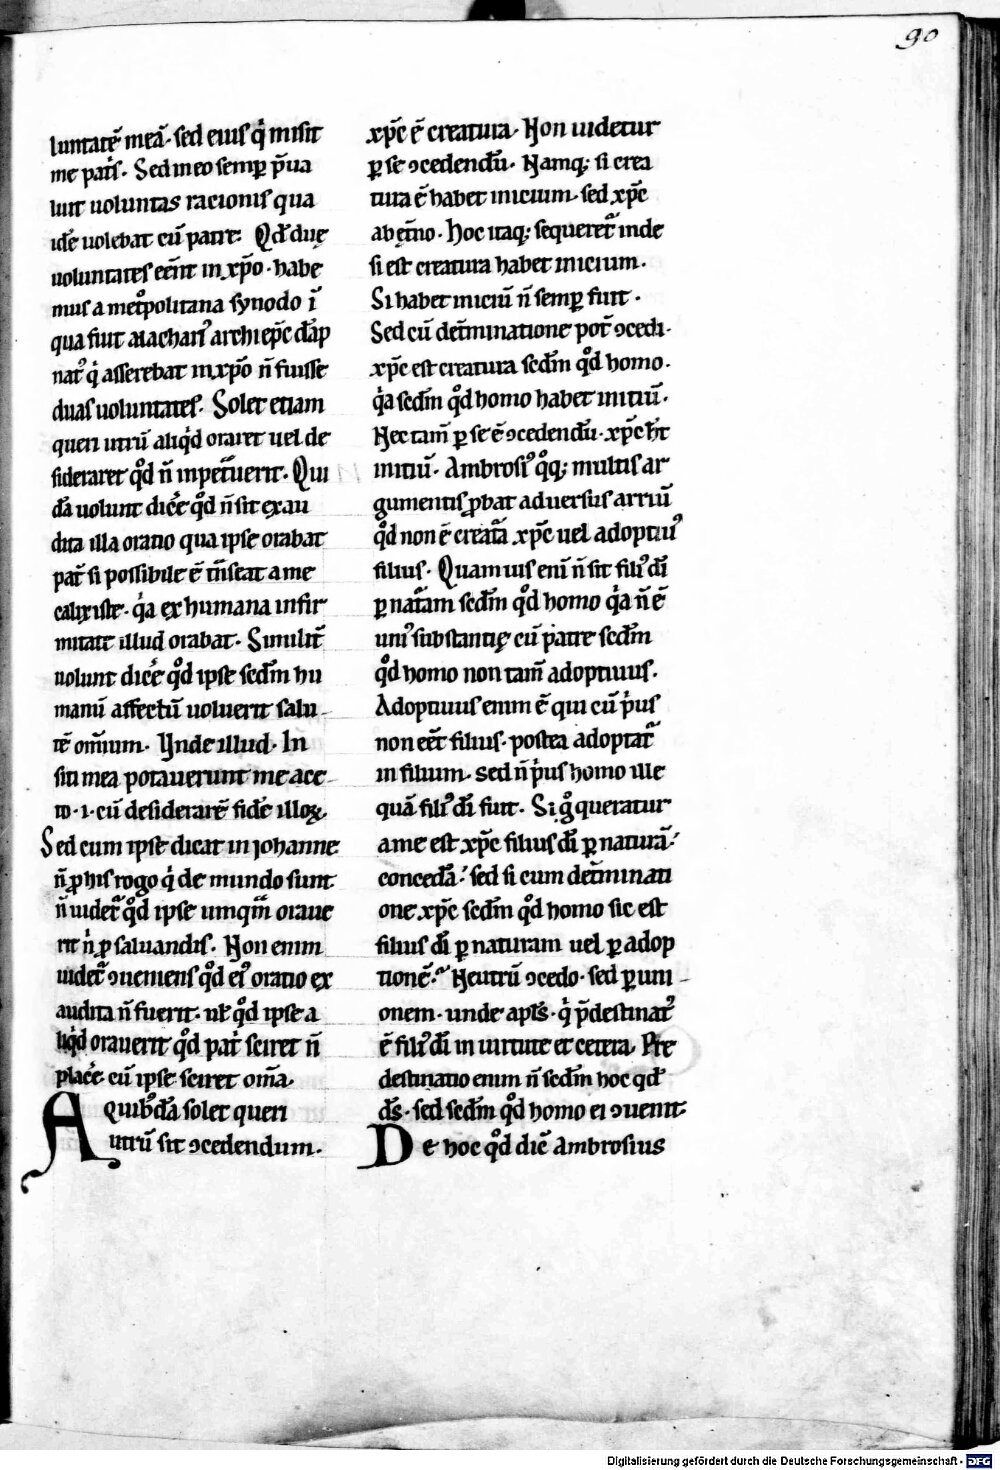 90
luntatē meā. sed eius q̇ misit
me patꝛ̄s. Sed in eo semp̱ p̄ua
luit uoluntas racionis qua
idē uolebat cū patre. Qđ duę
uoluntates eēnt in xp̄o. habe
mus a metͦpolitana synodo ī
qua fuit Macharꝰ archiep̄c dāp
natꝰ q̇ asserebat in xp̄o n̄ fuisse
duas uoluntates. Solet etiam
queri utrū aliq̇d oraret uel de
sideraret qͦd n̄ inpetͣuerit. Qui
dā uolunt dicē qͦd n̄ sit exau
dita illa oratio qua ipse orabat
patꝛ̄ si possibile ē tn̄seat a me
calix iste. q̇a ex humana infir
mitate illud orabat. Similit̄
uolunt dicē qͦd ipse scdm̄ hu
manū affectū uoluerit salu
tē om̄ium. Vnde illud. In
siti mea potauerunt me ace
to .i. cū desiderarē fidē illoꝝ.
Sed cum ipse dicat in iohanne
n̄ ꝓ his rogo q̇ de mundo sunt
n̄ uidetͣ qͦd ipse umqͣm oraue
rit n̄ ꝓ saluandis. Non enim
uidetͣ ꝯueniens qͦd eiꝰ oratio ex
audita n̄ fuerit. ut̄ qͦd ipse a
liq̇d orauerit qͦd patꝛ̄ sciret n̄
placē. cū ipse sciret om̄a.
A quibꝰdā solet queri
utrū sit ꝯcedendum.
xp̄c ē creatura. Non uidetur
ꝑ se ꝯcedendū. Namq; si crea
tura ē habet inicium. sed xp̄c
ab et̄no. Hoc itaq; sequeretͣ inde
si est creatura habet inicium.
Si habet iniciū n̄ semp̱ fuit.
Sed cū det̄minatione pot̄ ꝯcedi.
xp̄c est creatura scdm̄ qͦd homo.
q̇a scdm̄ qͦd homo habet initiū.
Nec tam̄ ꝑ se ē ꝯcedendū. xp̄c ht̄
initiū. Ambrosiꝰ qͦq; multis ar
gumentis ꝓbat aduersus arriū
qͦd non ē creatͣa xp̄c uel adoptiuꝰ
filius. Quamuis enī n̄ sit filiꝰ dī
ꝑ natͣam scdm̄ qͦd homo q̇a n̄ ē
uniꝰ substantię cū patre scdm̄
qͦd homo non tam̄ adoptiuus.
Adoptiuus enim ē qui cū ṗus
non eēt filius. postea adoptatͣ
in filium. sed n̄ ṗus homo ille
quā filiꝰ dī fuit. Si gͦ queratur
a me est xp̄c filius dī ꝑ naturā.
concedā. sed si cum det̄minati
one xp̄c scdm̄ qͦd homo sic est
filius dī ꝑ naturam uel ꝑ adop
tionē. Neutrū ꝯcedo. sed ꝑ uni
onem. unde apl̄s. q̇ p̄destinatꝰ
ē filiꝰ dī in uirtute et cetera. Pre
destinatio enim n̄ scdm̄ hoc qđ
ds̄. sed scdm̄ qͦd homo ei ꝯuenit.
De hoc qͦd dic̄ Ambrosius
Digitalisierung gefördert durch die Deutsche Forschungsgemeinschaft - DFG